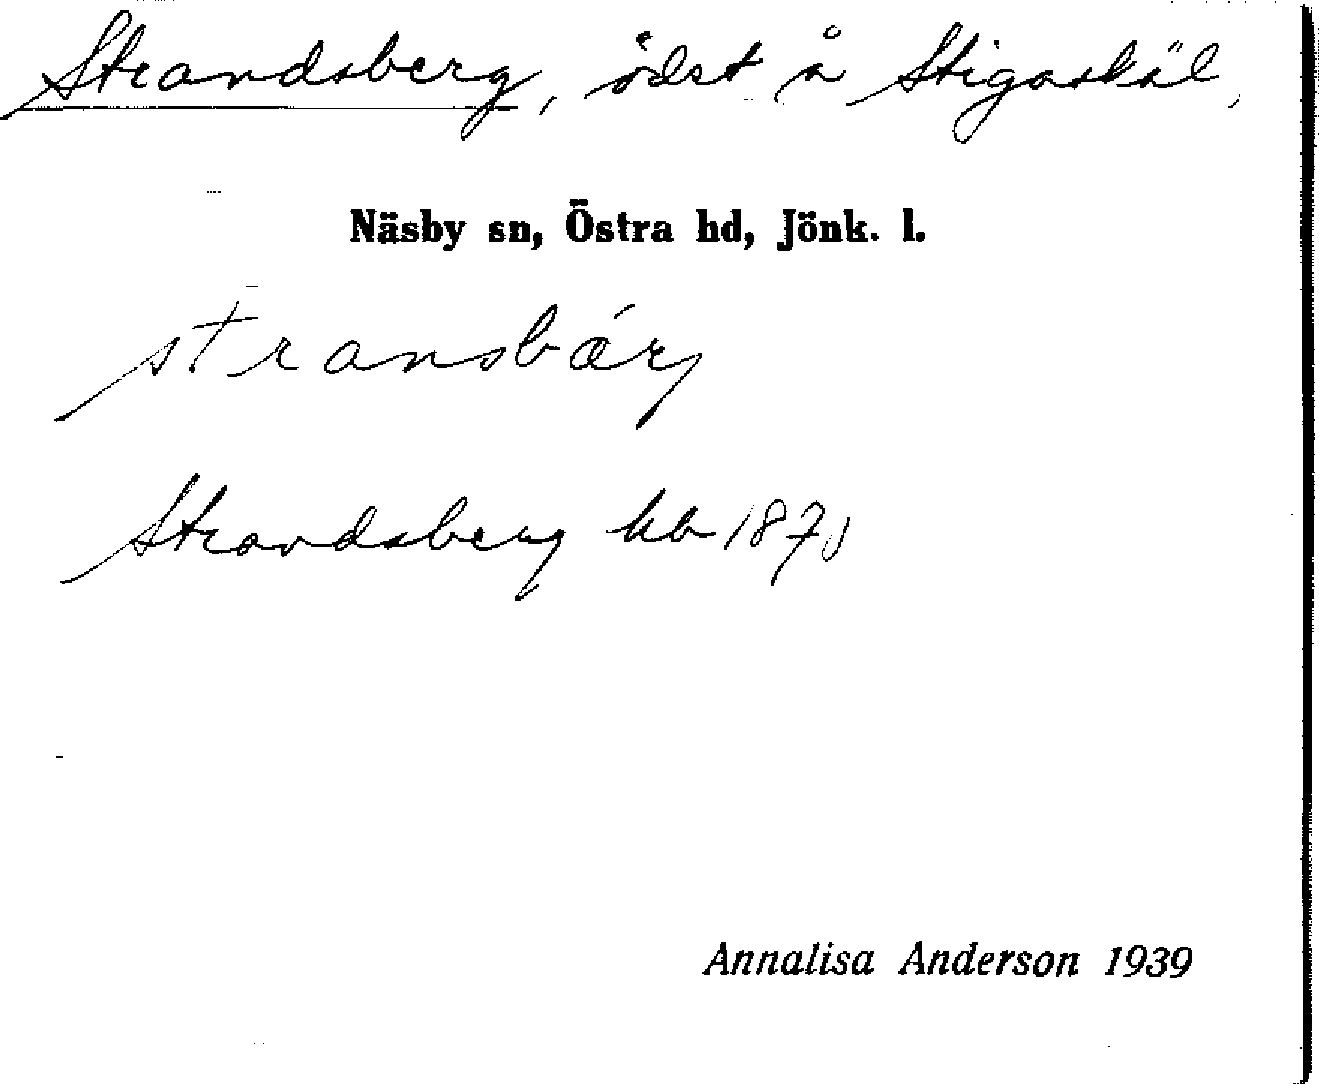 Strandsberg, ödst å Stigaskäl,
Näsby sn, Östra hd, Jönk. l.
stransbárj
Strandsberg hb 1870
Annalisa Anderson 1939